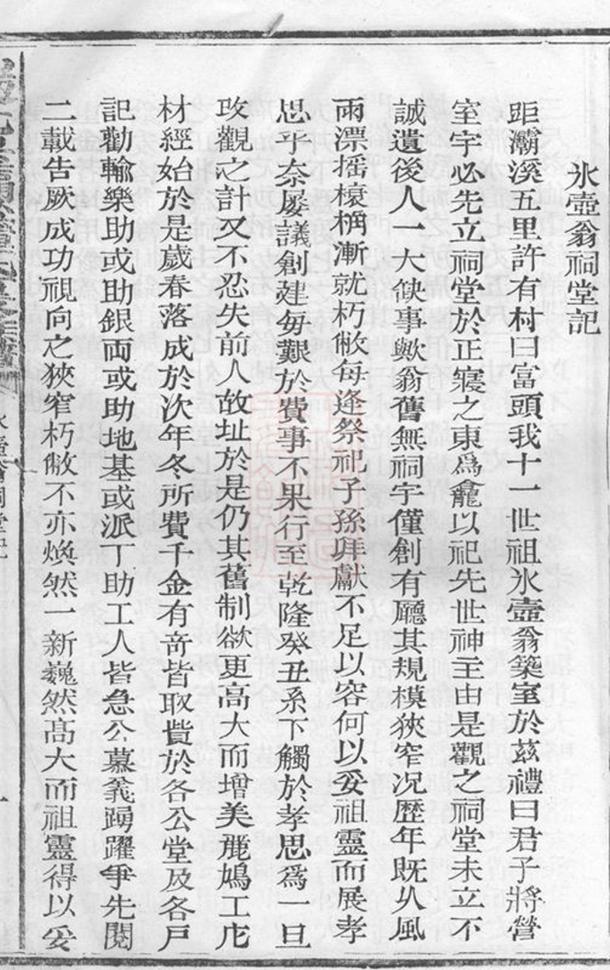 氷壺翁祠堂記
距灞溪五里許有村曰富頭我十一世祖氷壺翁築室於茲禮曰君子將營
室宇必先立祠堂於正寢之東爲龕以祀先世神主由是觀之祠堂未立不
誠遺後人一大歉事歟翁舊無祠宇僅創有廳其規模狹窄况歷年既乆風
雨漂搖榱桷漸就朽敝每逢祭祀子孫拜獻不足以容何以妥祖靈而展孝
思乎奈屡議創建每艱於費事不果行至乾隆癸丑系下觸於孝思爲一旦
攻觀之計又不忍失前人故址於是仍其舊制欲更高大而增美麗鳩工庀
材經始於是歲春落成於次年冬所費千金有竒皆取貲於各公堂及各戸
記勸輸樂助或助銀両或助地基或派丁助工人皆急公慕義踴躍爭先閱
二載告厥成功視向之狹窄朽敝不亦煥然一新巍然髙大而祖靈得以妥
氷壺翁祠堂記
一